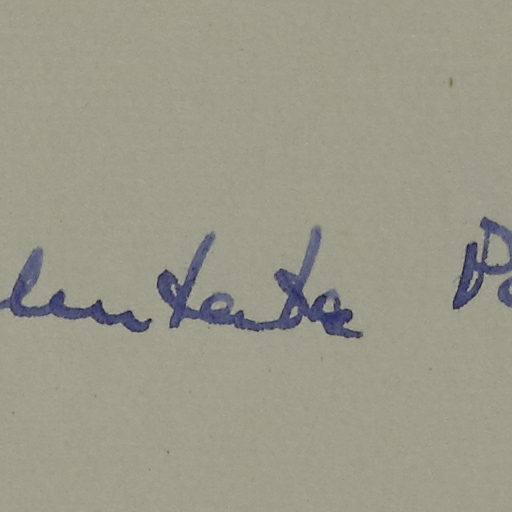 lentata Po